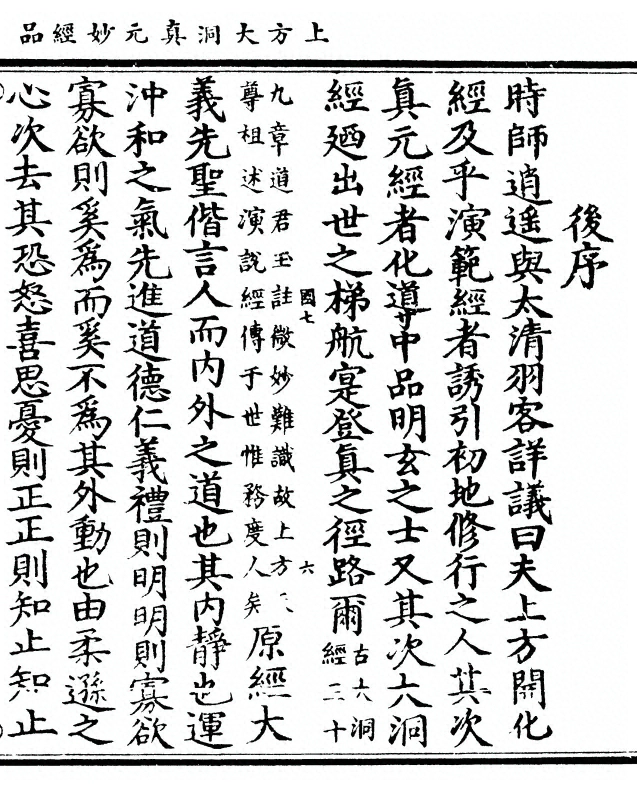 上方大洞真元妙經品
後序
時師逍遥與太清羽客詳議曰夫上方開化
經及乎演範經者誘引初地修行之人其次
真元經者化導中品明玄之士又其次六洞
經廼出世之梯航寔登真之徑路爾古六洞
經三十
國七
六
九章道君玉註微妙難識故上方
尊祖述演說經傳于世惟務度人矣原經大
義先聖偕言人而内外之道也其内靜也運
沖和之氣先進道德仁義禮則明明則寡欲
寡欲則奚為而奚不為其外動也由柔遜之
心次去其恐怒喜思憂則正正則知止知止